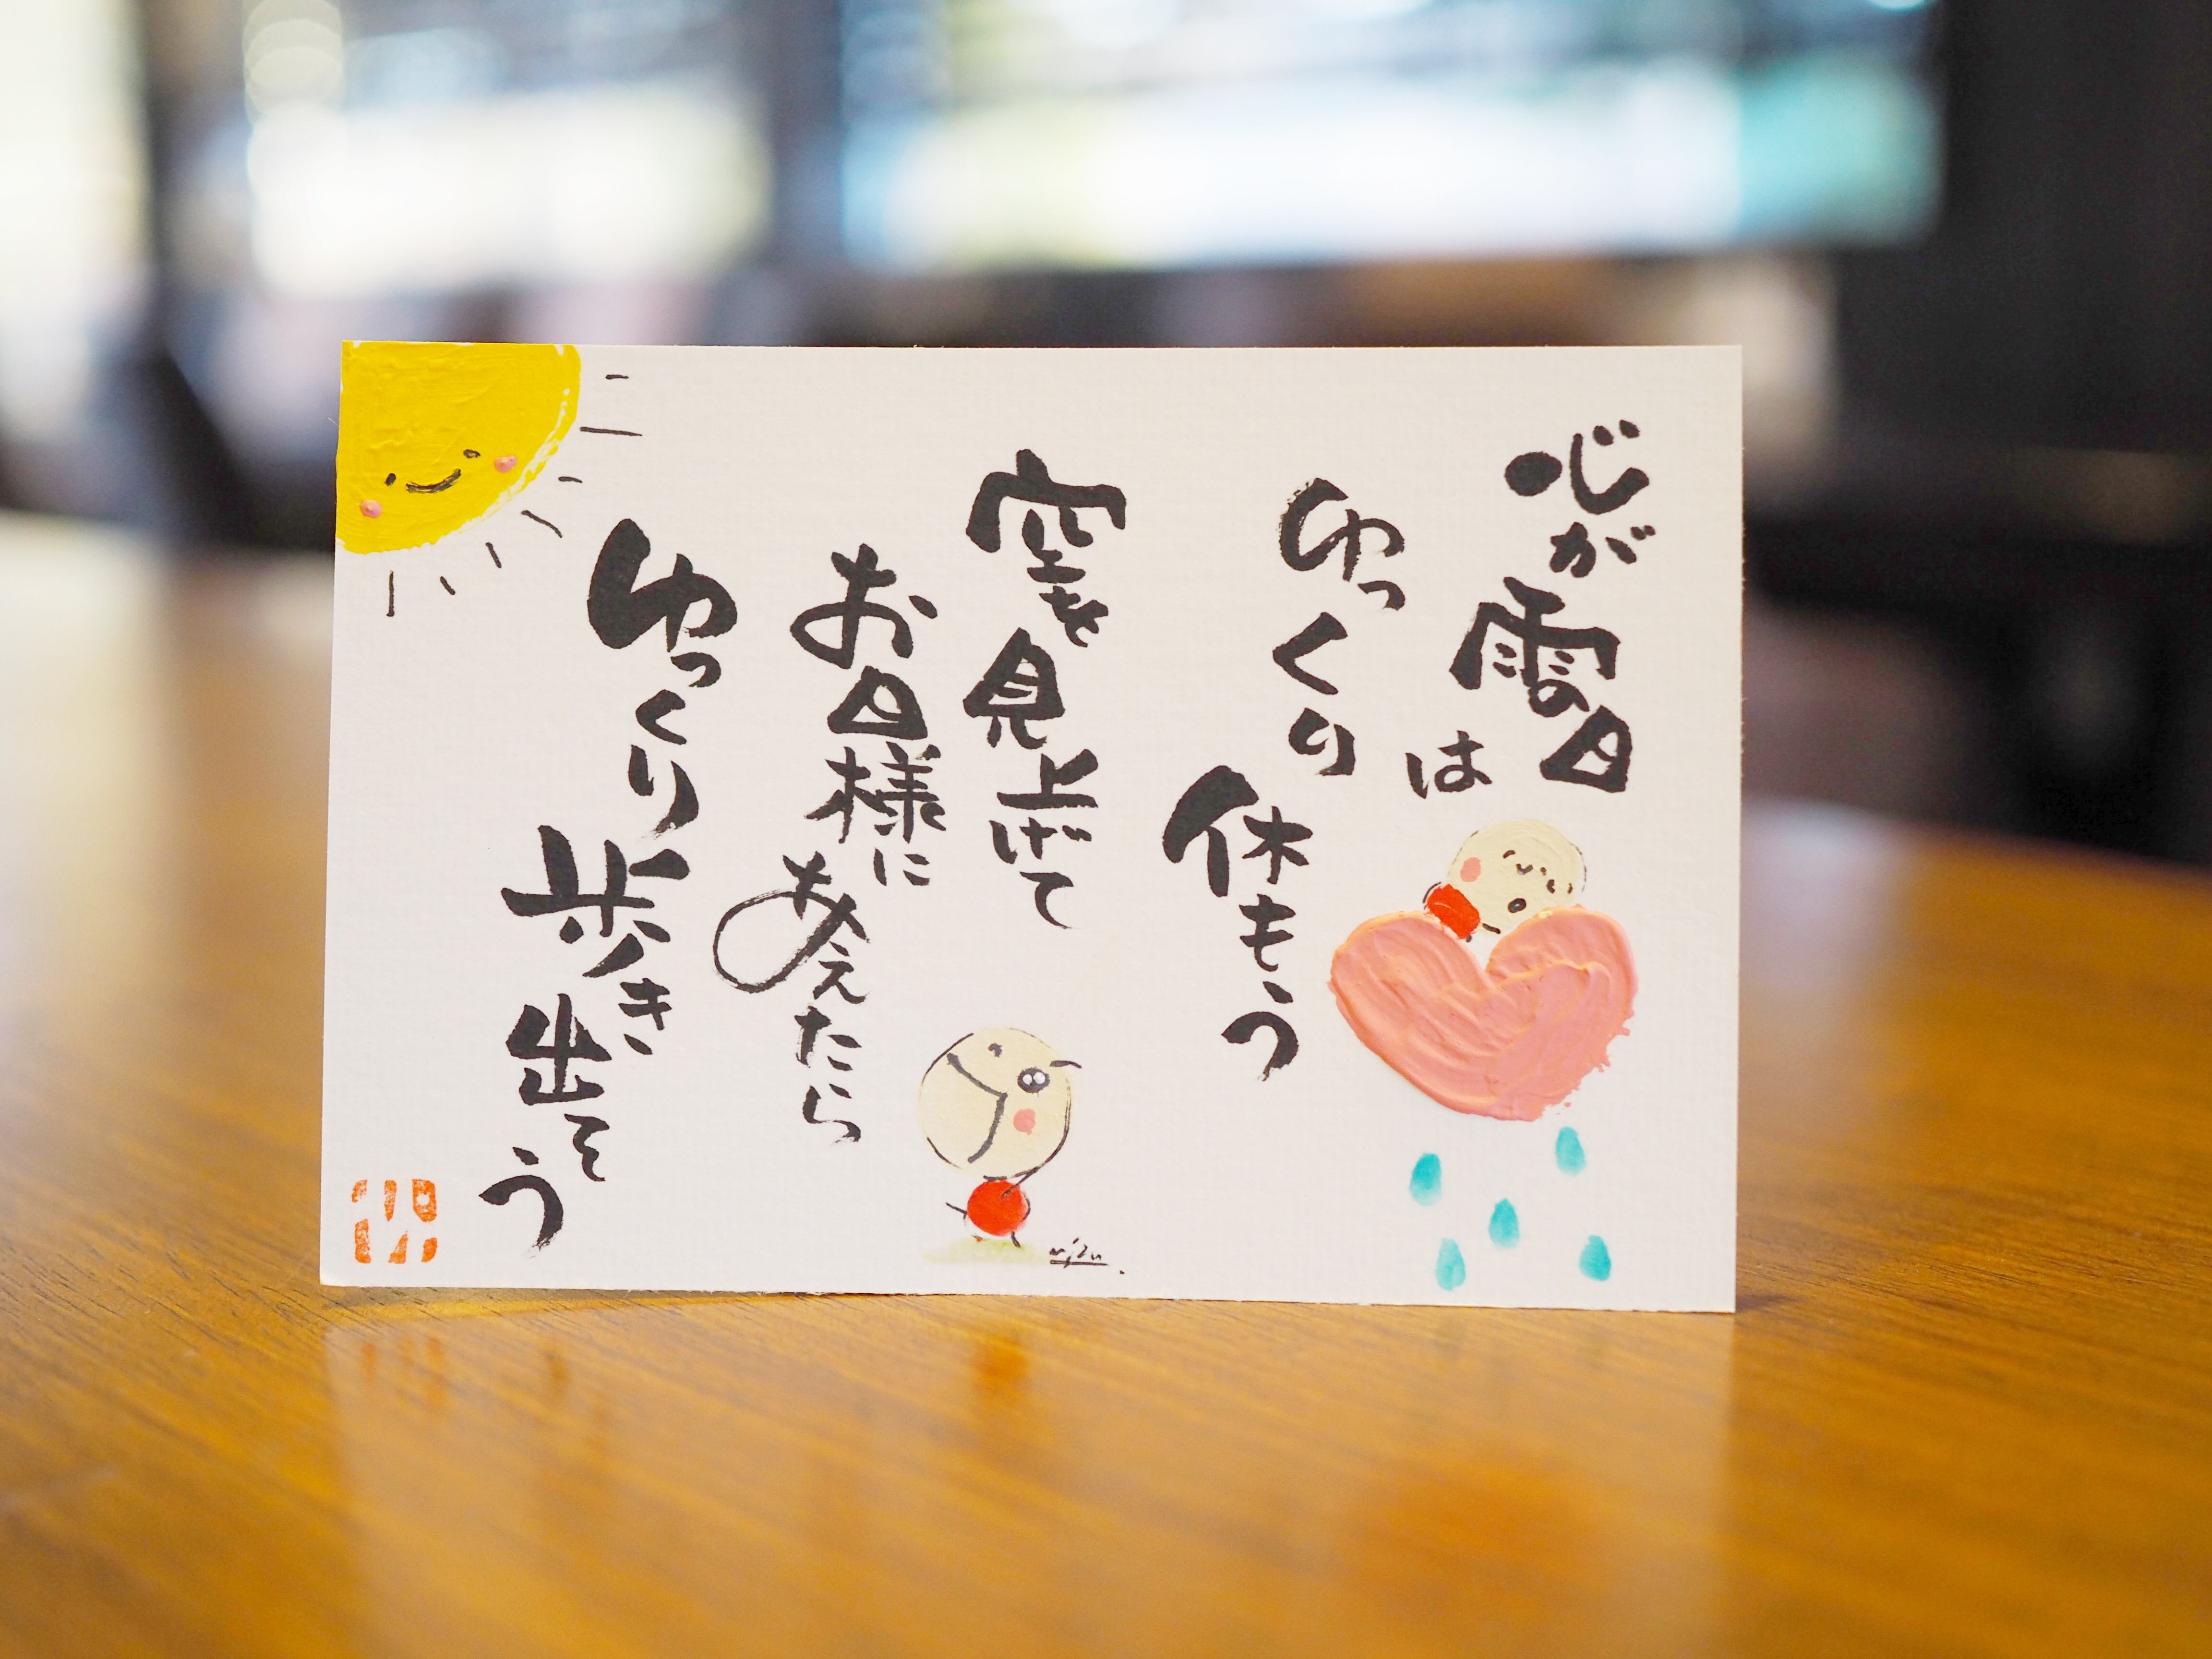 心が雨の日は
ゆっくり休もう
空を見上げて
お日様にあえたら
ゆっくり歩き出そう